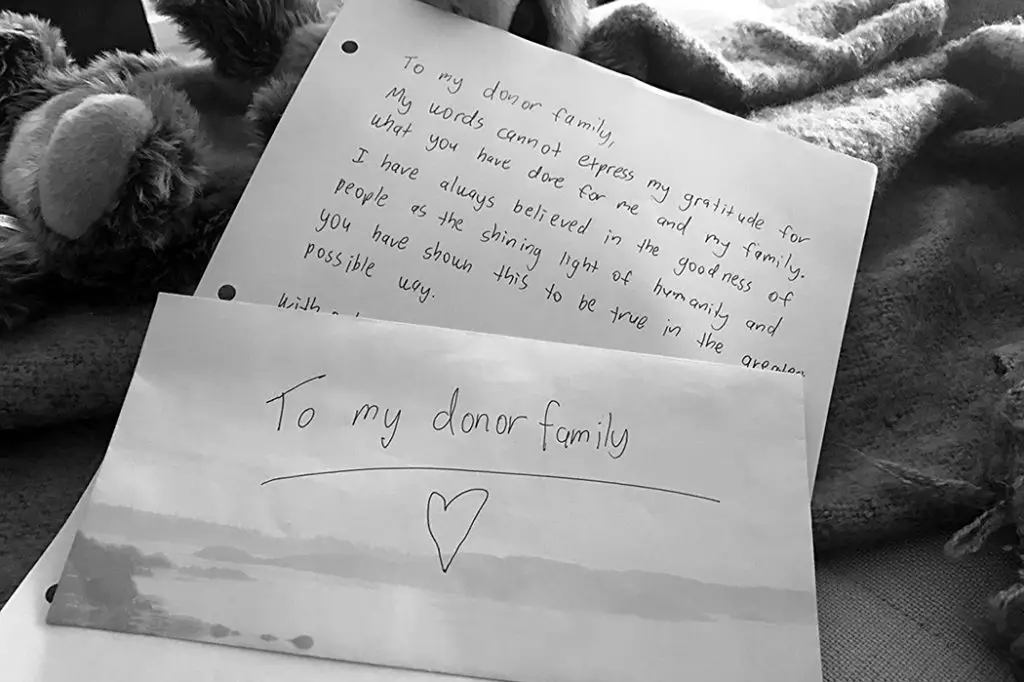 To my donor family,
My words cannot express my gratitude for
what you have done for me and my family.
I have always believed in the goodness of
people as the shining light of humanity and
you have shown this to be true in the
possible way.
with
To my donor family